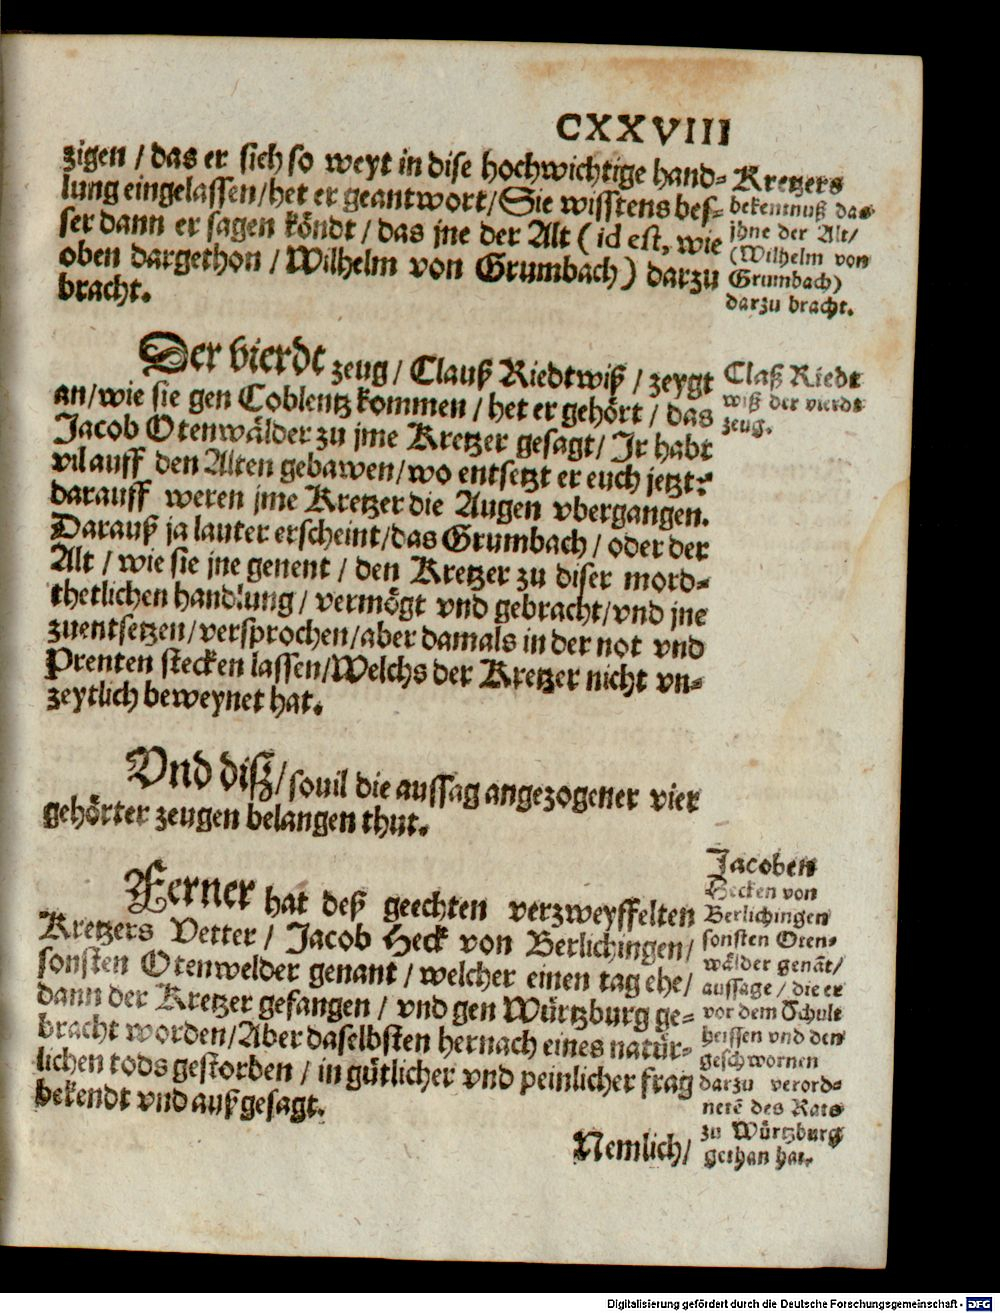 CXXVIII
zigen / das er sich so weyt in dise hochwichtige hand⸗
lung eingelassen/het er geantwort/Sie wisstens bes⸗
ser dann er sagen köndt / das jne der Alt (id est, wie
oben dargethon / Wilhelm von Grumbach) darzu
bracht.
Kretzers
bekentnuß das
jhne der Alt/
(Wilhelm von
Grumbach)
darzu bracht.
Der vierdt zeug / Clauß Riedtwiß / zeygt
an/wie sie gen Coblentz kommen / het er gehört / das
Jacob Otenwälder zu jme Kretzer gesagt/ Jr habt
vil auff den Alten gebawen/wo entsetzt er euch jetzt?
darauff weren jme Kretzer die Augen vbergangen.
Darauß ja lauter erscheint/das Grumbach / oder der
Alt / wie sie jne genent / den Kretzer zu diser mord⸗
thetlichen handlung / vermögt vnd gebracht/vnd jne
zuentsetzen/versprochen/aber damals in der not vnd
Prenten stecken lassen/Welchs der Kretzer nicht vn⸗
zeytlich beweynet hat.
Claß Riedt
wiß der vierdt
zeug.
Vnd diß/souil die aussag angezogener vier
gehörter zeugen belangen thut.
Ferner hat deß geechten verzweyffelten
Kretzers Vetter / Jacob Heck von Berlichingen/
sonsten Otenwelder genant / welcher einen tag ehe/
dann der Kretzer gefangen / vnd gen Würtzburg ge⸗
bracht worden/Aber daselbsten hernach eines natür⸗
lichen tods gestorben / in gütlicher vnd peinlicher frag
bekendt vnd außgesagt.
Jacoben
Hecken von
Berlichingen
sonsten Oten⸗
wälder genãt/
aussage / die er
vor dem Schult
heissen vnd den
geschwornen
darzu verord⸗
netẽ des Rats
zu Würtzburg
gethan hat.
Nemlich/
Digitalisierung gefördert durch die Deutsche Forschungsgemeinschaft - DFG